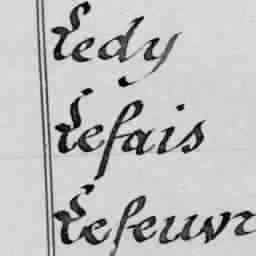 Ledy
Lefais
Lefeuvr